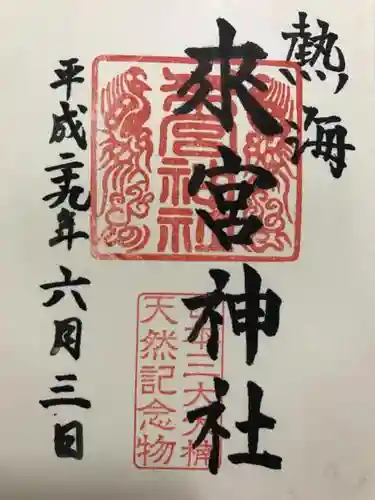 熱海
來宮神社
来宮神社
日本三大大楠
天然記念物
平成二十九年六月三日